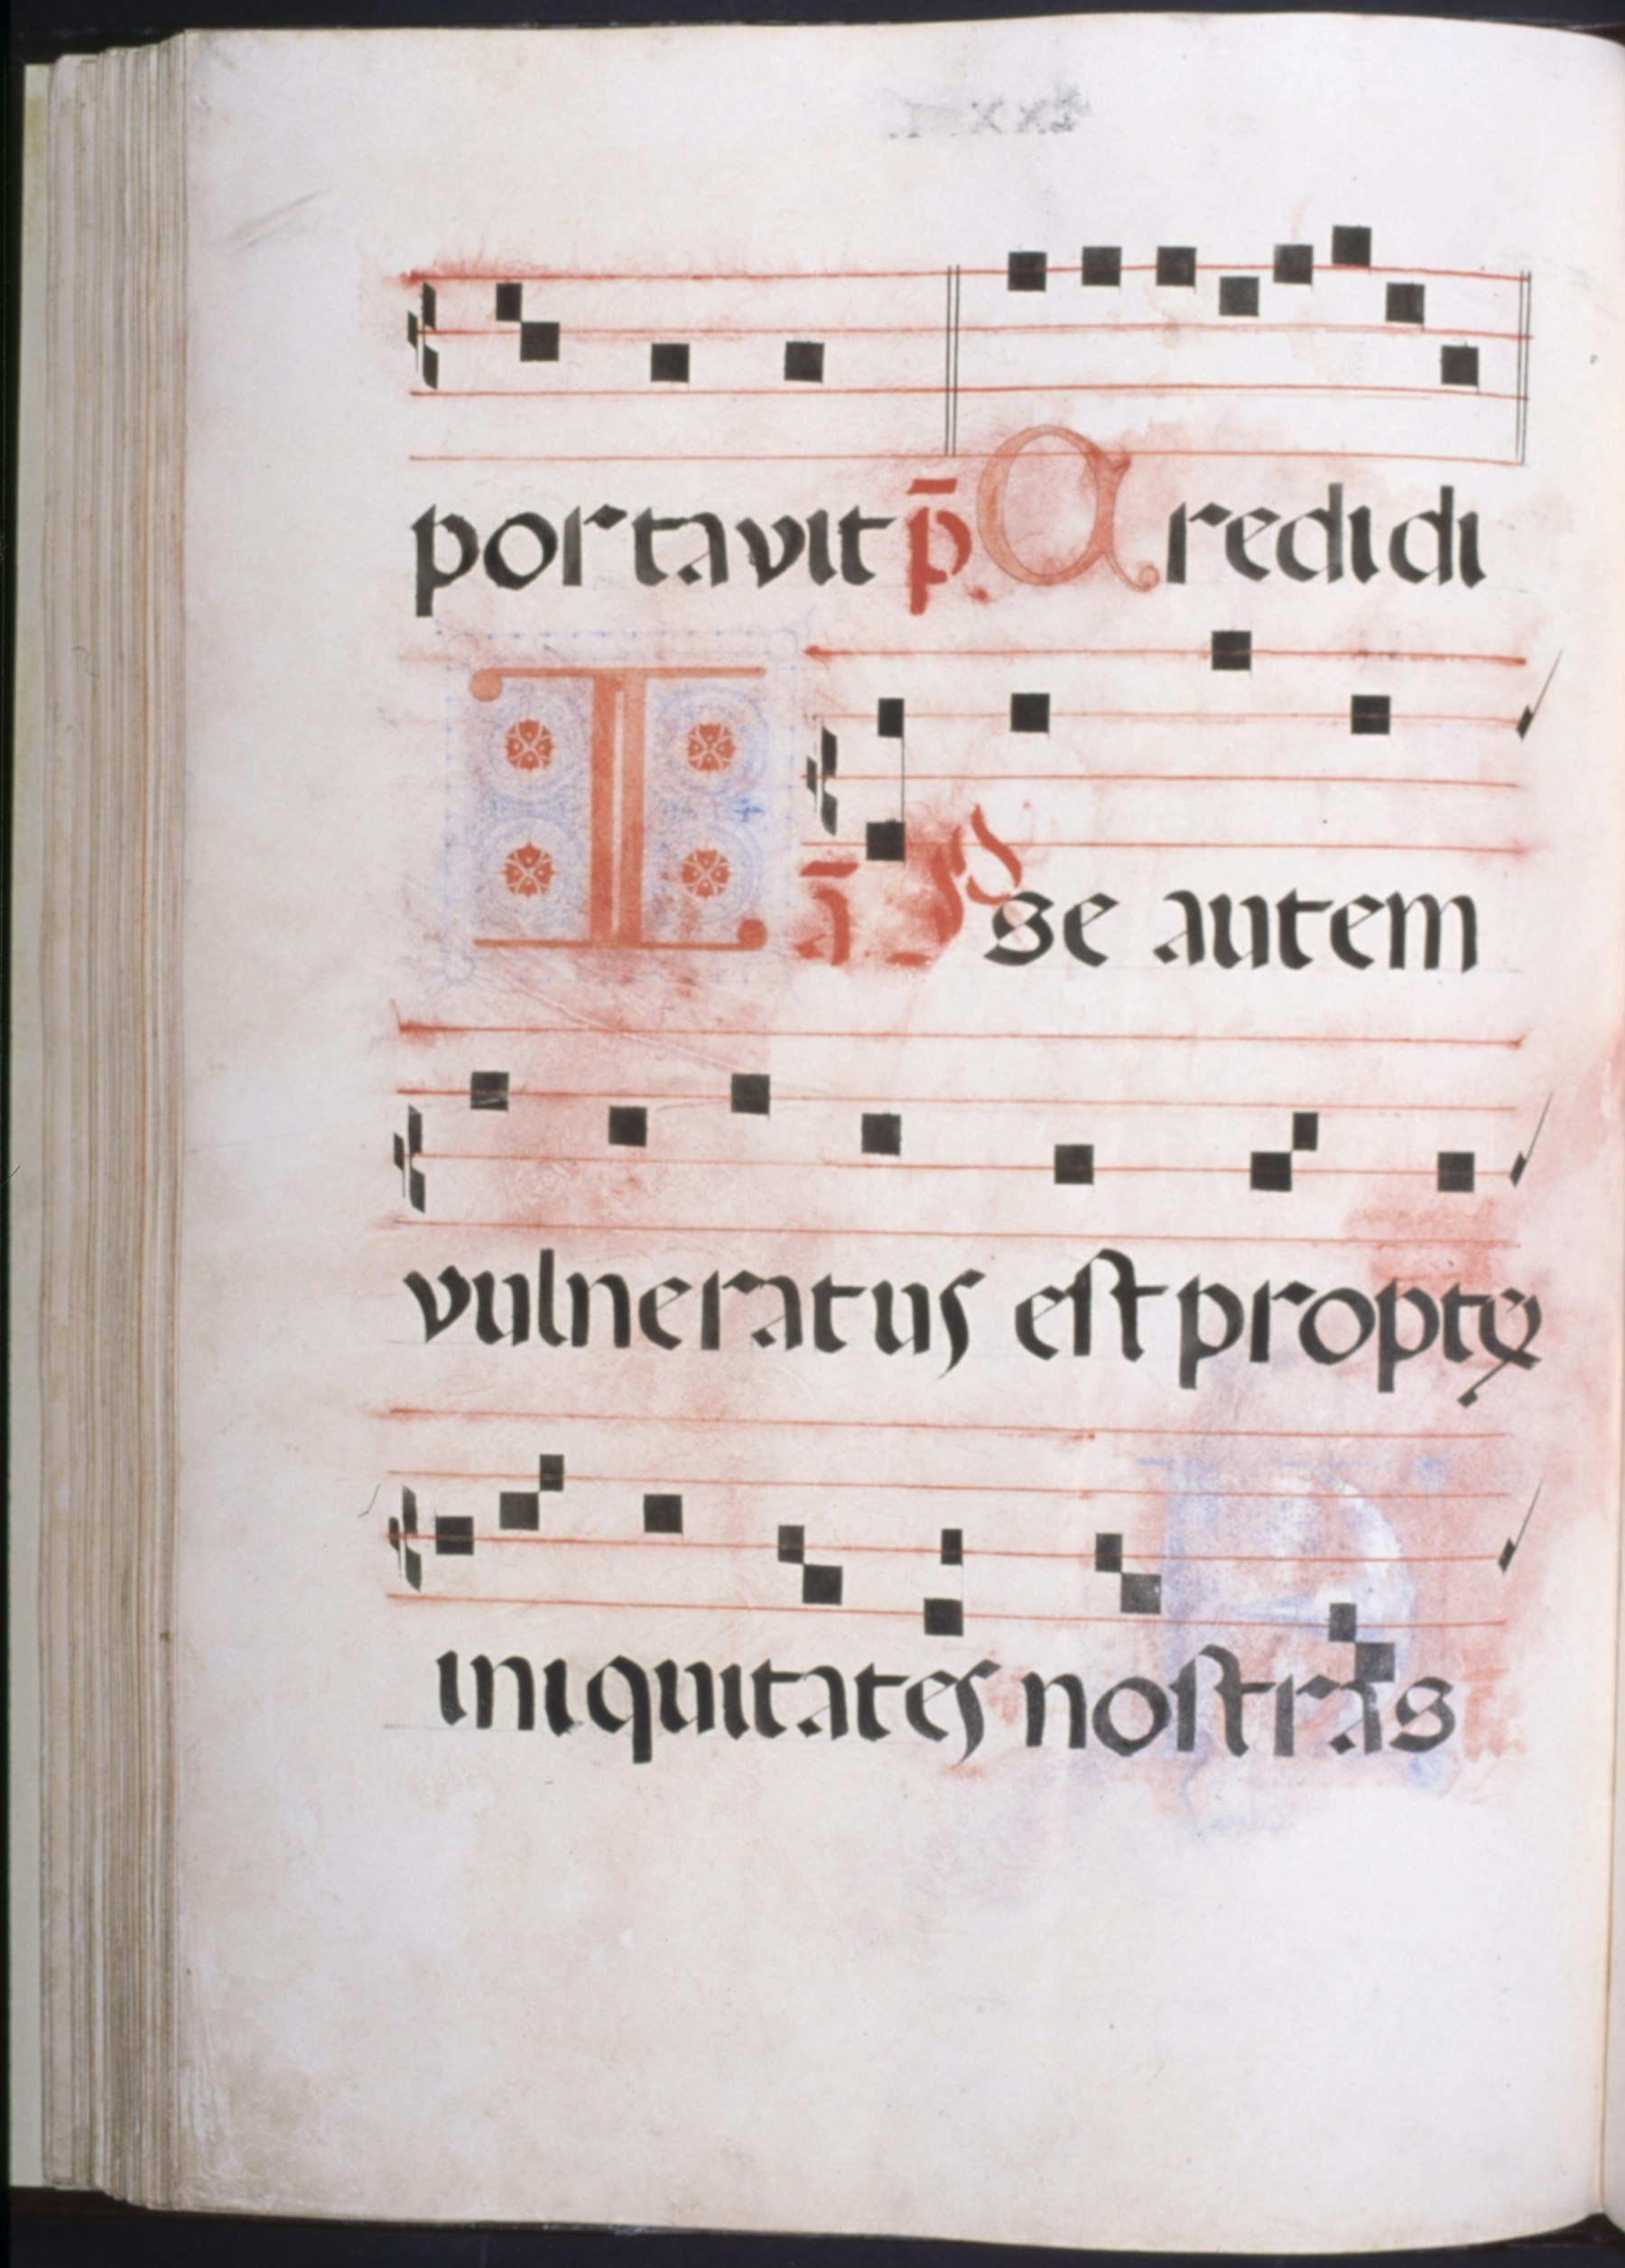 portavit p̄ Credidi
Ipse autem ā
vulneratus est propter
iniquitates nostras